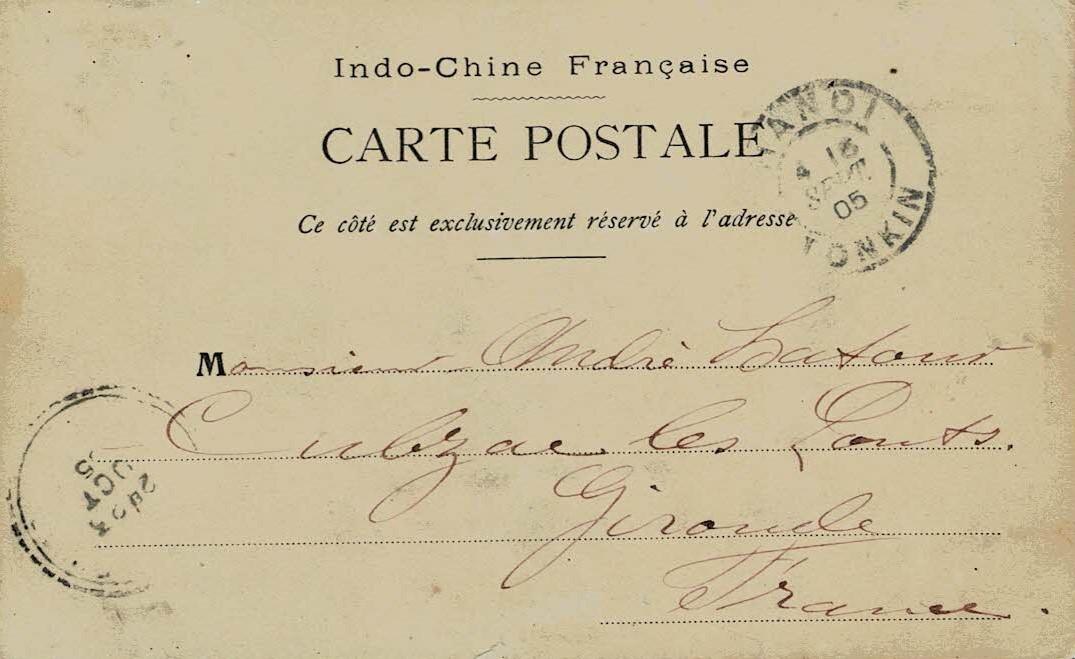 Indo-Chine Française
CARTE POSTALE
Ce côté est exclusivement réservé à l'adresse
HANOI
16
SEPTE
05
TONKIN
Monsieur André Latour
Cubzac les Ponts.
Gironde
France.
OCT